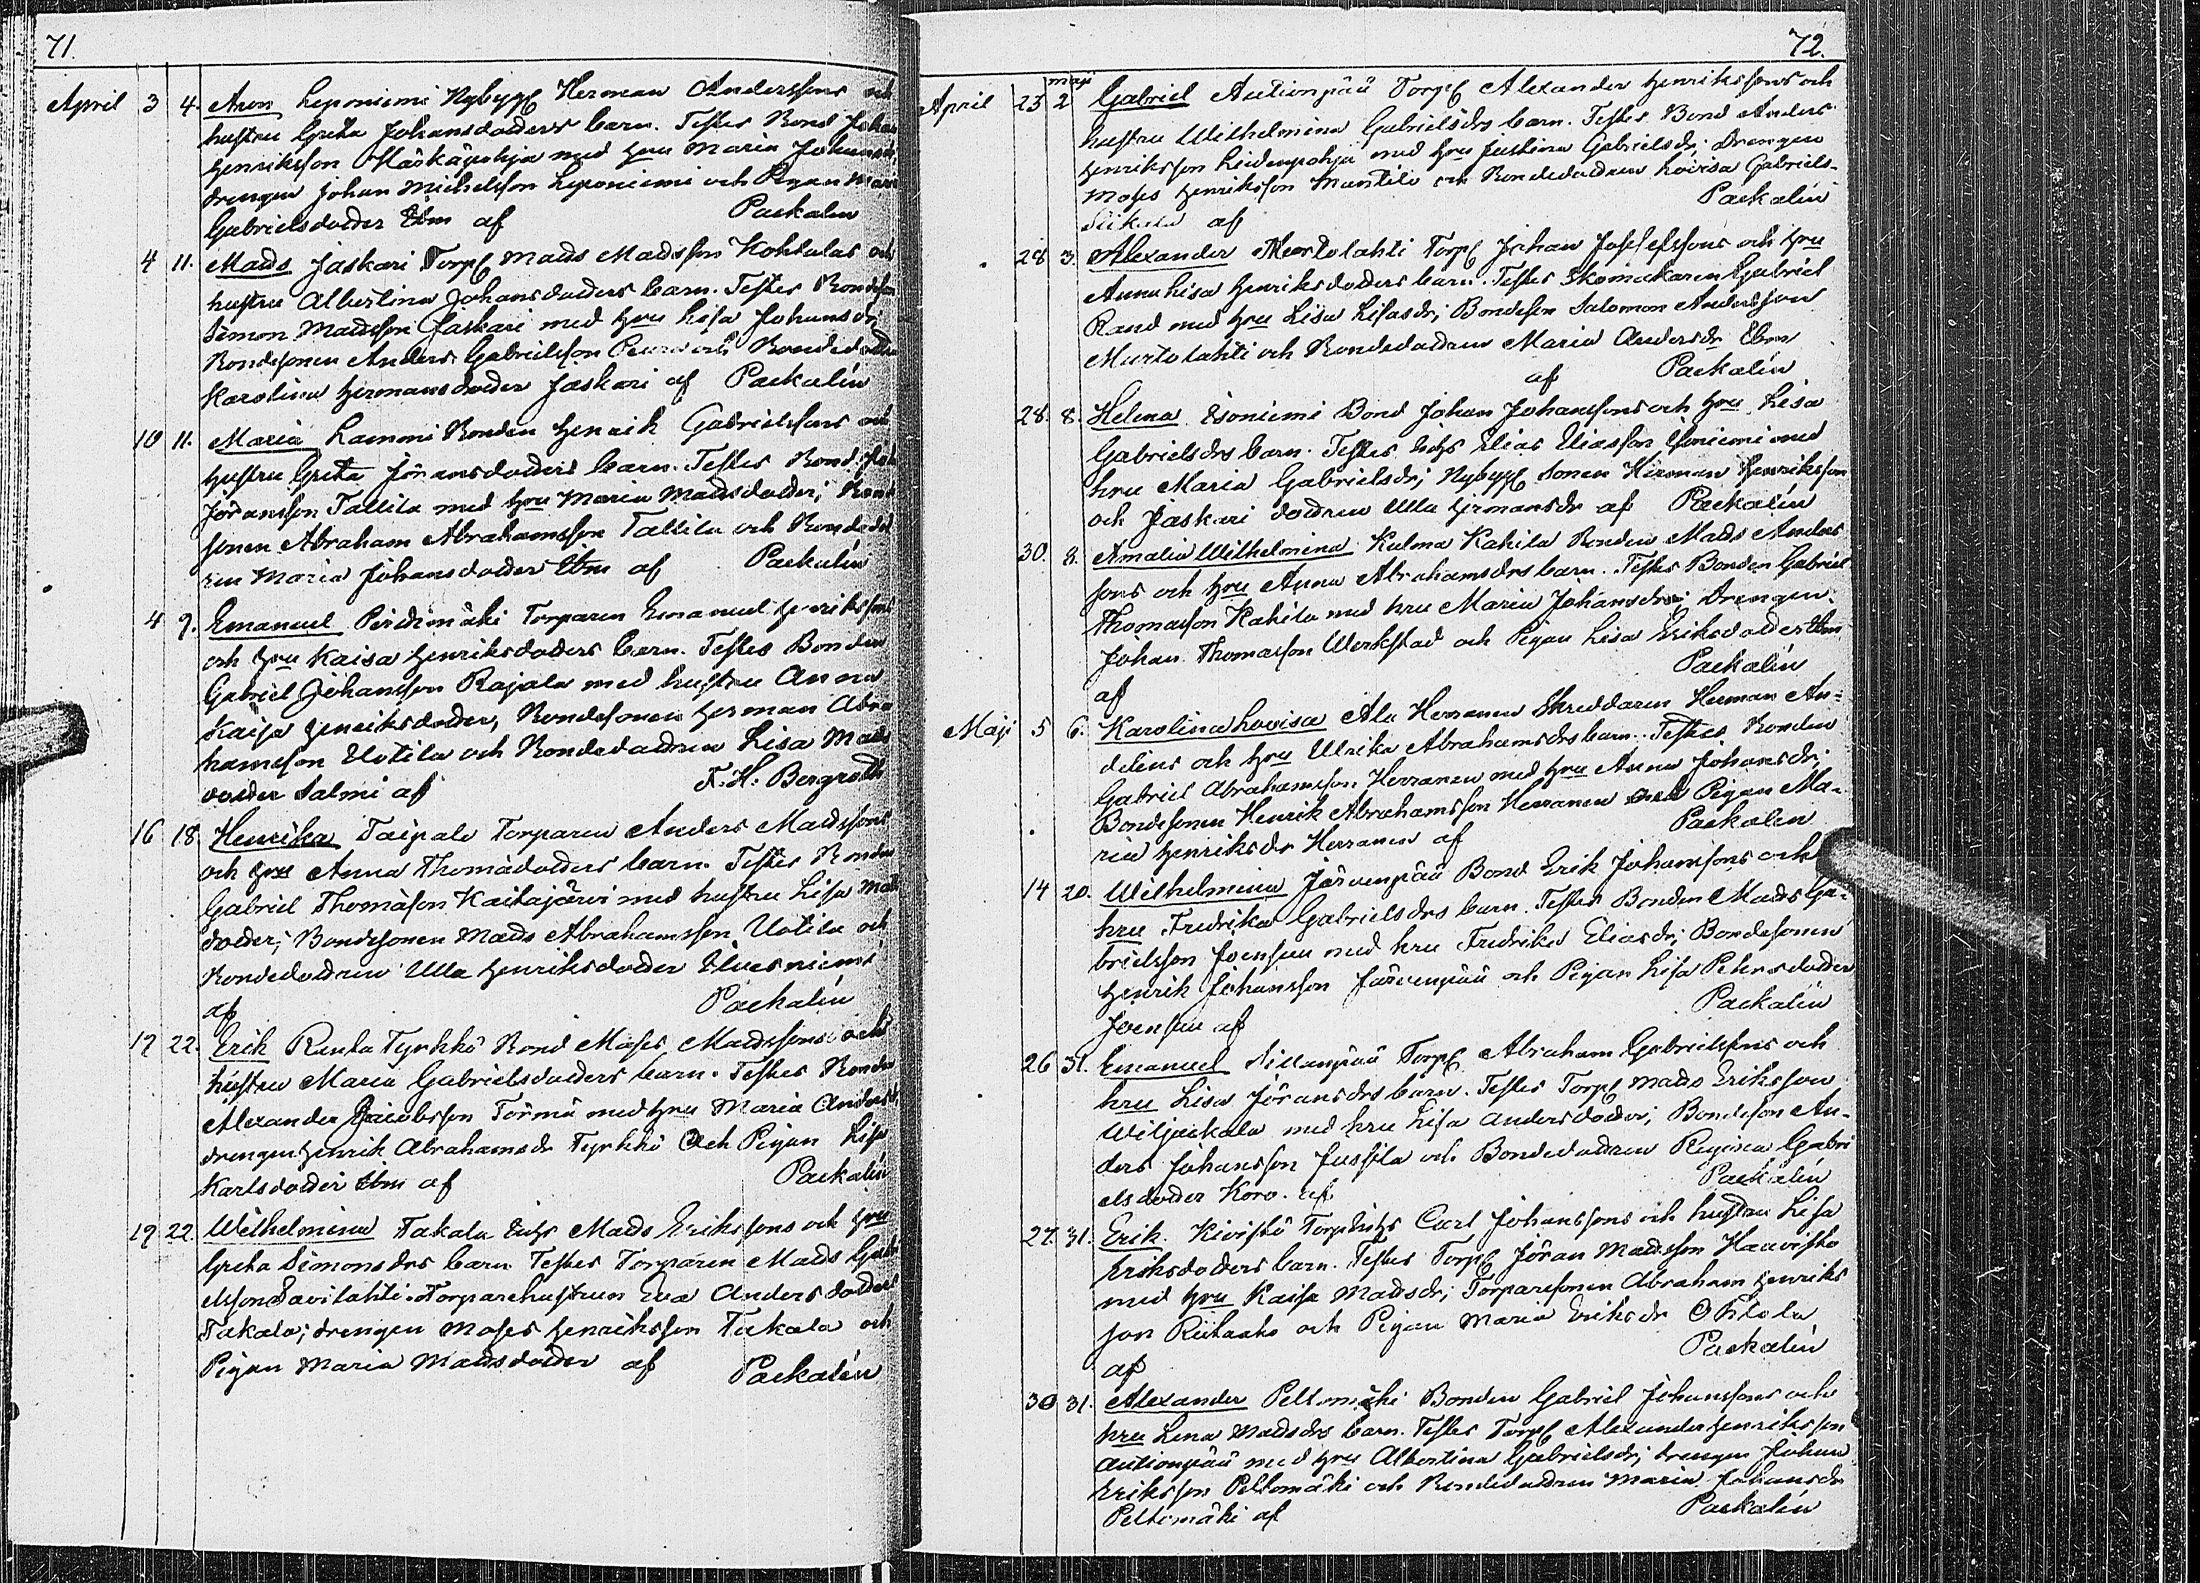 71.
April 3 4. Aron Leponiemi Nybygg Herman Anderssons och
hustru Greta Johansdotters barn. Testes Bond Johan
Henriksson Härkäpohja med hru Maria Johansdr,
drengen Johan Michelsson Leponiemi och Pigan Maria
Gabrielsdotter Ibm af Packalén
4 11. Mads Jaskari Torp Mads Madsson Kohtalas och
hustru Albertina Johansdotters barn. Testes Bondeson
Simon Madsson Jaskari med hru Lisa Johansdr,
Bondesonen Anders Gabrielsson Peura och Bondedottren
Karolina Hermansdotter Jaskari af Packalén
10 11. Maria Lammi Bonden Henrik Gabrielssons och
hustru Greta Jöransdotters barn. Testes Bond Joh
Jöransson Tallila med hru Maria Madsdotter; Bonde
sonen Abraham Abrahamsson Tallila och Bondedot
ren Maria Johansdotter Ibm af Packalén
4 9. Emanuel Perdimäki Torparen Emanuel Henrikssons
och hru Kaisa Henriksdotters barn. Testes Bonden
Gabriel Johansson Rajala med hustru Anna
Kaisa Henriksdotter, Bondesonen Herman Abra
hamsson Uotila och Bondedottren Lisa Mads
dotter Salmi af F. H. Bergroth
16 18. Henrika Taipale Torparen Anders Madssons
och hru Anna Thomädotters barn. Testes Bonden
Gabriel Thomäson Kaitajärvi med hustru Lisa Mads
dotter; Bondesonen Mads Abrahamsson Uotila och
Bondedottren Ulla Henriksdotter Elvesniemi
af Packalén
19 22. Erik Ranta Tyrkkö Bond Moses Madssons och
hustru Maria Gabrielsdotters barn. Testes Bonden
Alexander Jacobsson Törmä med hru Maria Andersdr,
drengen Henrik Abrahamsdr Tyrkkö och Pigan Lisa
Karlsdotter Ibm af Packalén
19 22. Wilhelmina Takala Inhs Mads Erikssons och hru
Greta Simonsdrs barn Testes Torparen Mads Gabri
elsson Savilahti Torparehustrun Eva Andersdotter
Takala; drengen Moses Henriksson Takala och
Pigan Maria Madsdotter af Packalén
72.
April 25 maji 2 Gabriel Autionpää Torp Alexander Henrikssons och
hustru Wilhelmina Gabrielsdrs barn. Testes Bond Anders
Henriksson Leidenpohja med hru Justina Gabrielsdr; Drengen
Moses Henriksson Mantila och Bondedottren Lovisa Gabriels-
Siikala af Packalén
28 3. Alexander Murtolahti Torp Johan Josefssons och hru
Anna Lisa Henriksdotters barn. Testes Skomakaren Gabriel
Rand med hru Lisa Lisasdr; Bondeson Salomon Andersson
Murtolahti och Bondedottren Maria Andersdr Ibm
af Packalén
28. 8. Helena Isoniemi Bond Johan Johanssons och hru Lisa
Gabrielsdrs barn. Testes Inhs Elias Eliasson Isoniemi med
hru Maria Gabrielsdr; Nybygg sonen Herman Henriksson
och Jaskari dottren Ulla Hermansdr af Packalén
30. 8. Amalia Wilhelmina Kulma Kahila Bonden Mads Anders
sons och hru Anna Abrahamsdrs barn. Testes Bonden Gabriel
Thomasson Kahila med hru Maria Johansdr; Drengen
Johan Thomasson Werkstad och Pigan Lisa Eriksdotter Ibm
af Packalén
Maji 5 6. Karolina Lovisa Ala Herranen Skreddaren Herman An-
delins och hru Ulrika Abrahamsdrs barn. Testes Bonden
Gabriel Abrahamsson Herranen med hru Anna Johansdr;
Bondesonen Henrik Abrahamsson Herranen och Pigan Ma-
ria Henriksdr Herranen af Packalén
14 20. Wilhelmina Järvenpää Bond Erik Johanssons och
hru Fredrika Gabrielsdrs barn. Testes Bonden Mads Ga-
brielsson Joensuu med hru Fredrika Eliasdr; Bondesonen
Henrik Johansson Järvenpää och Pigan Lisa Petersdotter
Joensuu af Packalén
26 31. Emanuel Sillanpää Torp Abraham Gabrielssons och
hru Lisa Jöransdrs barn. Testes Torp Mads Eriksson
Wiljackala med hru Lisa Andersdotter; Bondeson An-
ders Johansson Jussila och Bondedottren Regina Gabri
elsdotter Koro. af Packalén
27. 31. Erik. Kivistö Torp Inhs Carl Johanssons och hustru Lisa
Eriksdotters barn. Testes Torp Jöran Madsson Haavisto
med hru Kaisa Madsdr; Torparesonen Abraham Henriks
son Riitaaho och Pigan Maria Eriksdr Ohtola
af Packalén
30 31. Alexander Peltomäki Bonden Gabriel Johanssons och
hru Lena Madsdrs barn. Testes Torp Alexander Henriksson
Autionpää med hru Albertina Gabrielsdr; drengen Johan
Eriksson Peltomäki och Bondedottren Maria Johansdr
Peltomäki af Packalén